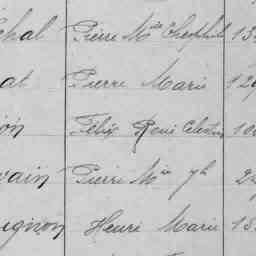 chal Pierre Mie Théophile 13
at Pierre Marie 129
ón Félix René Célestin 10
vain Pierre Mie Jh 2
ignon Henri Marie 18